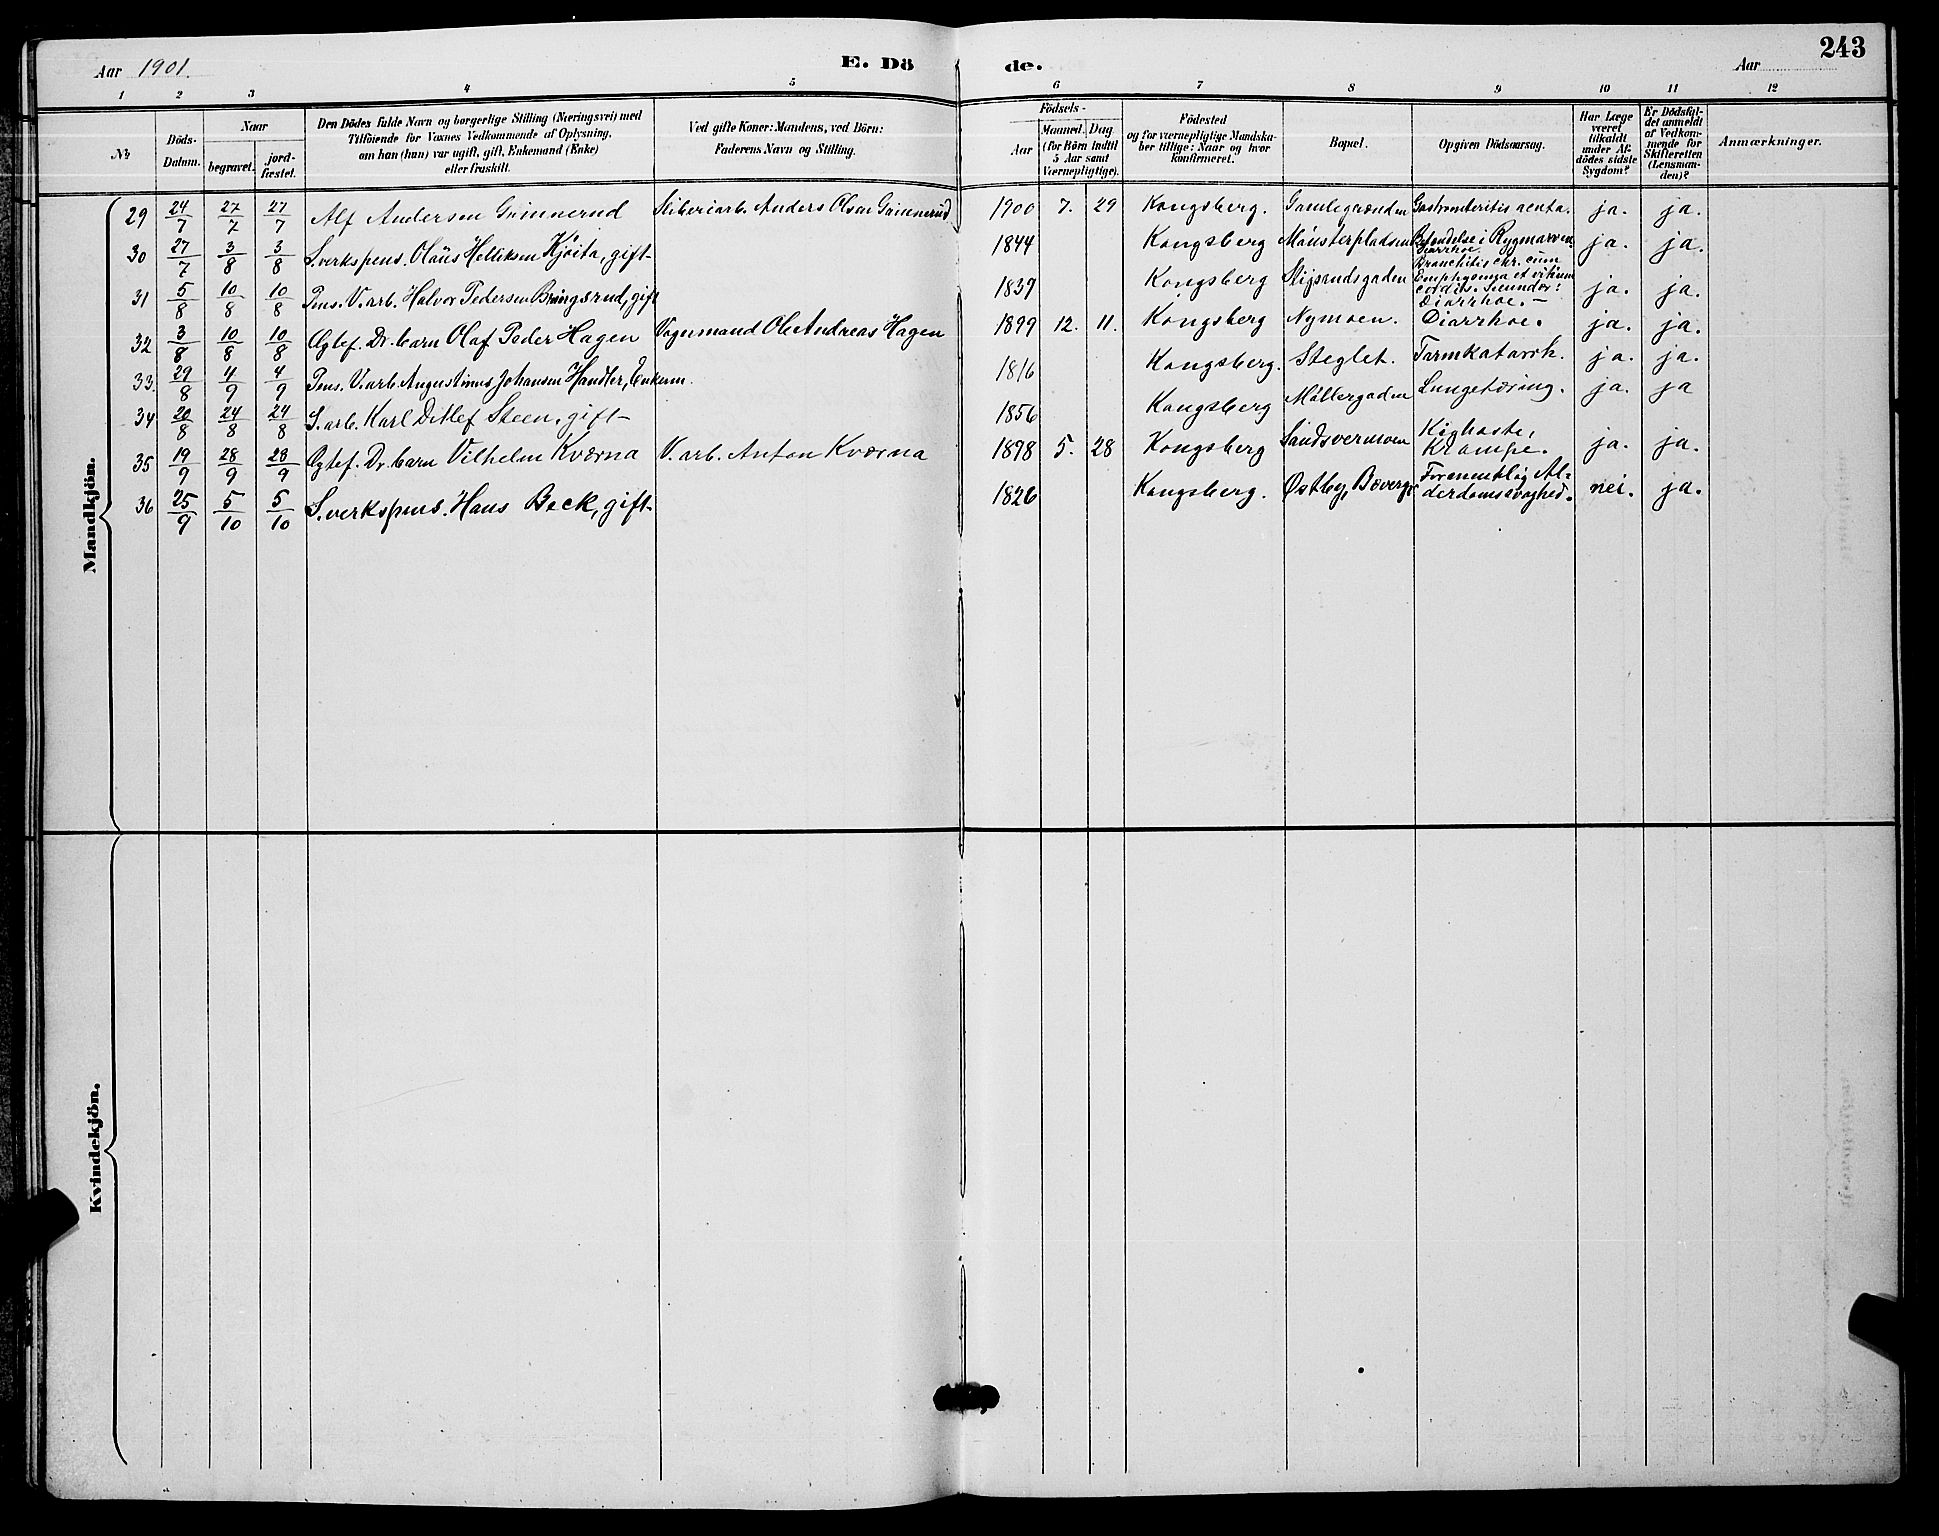 Aar 1901. E. Dö de. Aar 243
1 2 3 4 5 6 7 8 9 10 11 12
No
Döds-Datum.
Naar
begravet.
jord-fæstet.
Den Dödes fulde Navn og borgerlige Stilling (Næringsvei) med
Tilföiende for Voxnes Vedkommende af Oplysning,
om han (hun) var ugift, gift, Enkemand (Enke)
eller fraskilt.
Ved gifte Koner: Mandens, ved Börn:
Faderens Navn og Stilling.
Födsels-
Aar
Maaned. Dag
(for Börn indtil
5 Aar samt
Værnepligtige).
Födested
og for værnepligtige Mandska-
ber tillige: Naar og hvor
konfirmeret.
Bopæl.
Opgiven Dödsaarsag.
Har Læge
været
tilkaldt
under Af-
dödes sidste
Sygdom?
Er Dödsfal-
det anmeldt
af Vedkom-
mende for
Skifteretten
(Lensman-
den)?
Anmærkninger.
Mandkjön.
29 24/7 27/7 27/7 Alf Andersen Grimnerud Sliberiarb. Anders Olsen Grimnerud 1900 7. 29 Kongsberg. Gamlegrænden Gastroenteritis acuta. ja. ja.
30 27/7 3/8 3/8 S.verkspens. Olaus Helliksen Kjöita, gift- 1844 Kongsberg Mönsterpladsen Betændelse i Rygmarven Diarrhoe ja. ja.
31 5/8 10/8 10/8 Pens. V.arb. Halvor Pedersen Bringsrud, gift 1839 Kongsberg Stigsundsgaden Bronchitis chr. cum
Emphysema et vitium
cordis. Secundær:
Diarrhoe.- ja. ja.
32 3/8 10/8 10/8 Ægtef. Dr.barn Olaf Peder Hagen Vognmand Ole Andreas Hagen 1899 12. 11. Kongsberg Nymoen. Diarrhoe. ja. ja.
33. 29/8 4/9 4/9 Pens. V.arb. Augustinus Johansen Handler, Enkem. 1816 Kongsberg. Steglet. Tarmkatarrh. ja. ja.
34 20/8 24/8 24/8 S.arb. Karl Detlef Steen, gift- 1856 Kongsberg Möllergaden Lungetæring. ja. ja
35 19/9 28/9 28/9 Ægtef. Dr.barn Vilhelm Kværna V.arb. Anton Kværna 1898 5. 28 Kongsberg Sandsværmoen Kighoste,
Krampe. ja. ja.
36 25/9 5/10 5/10 S.verkspens. Hans Beck, gift- 1826 Kongsberg. Østby, Bævergr Formentlig Al-
derdomssvaghed. nei. ja.
Kvindekjön.